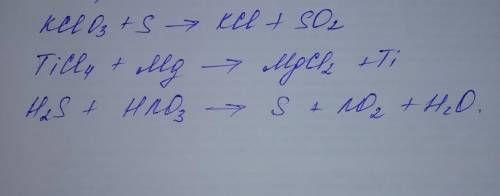 KClO₃ + S → KCl + SO₂
TiCl₄ + Mg → MgCl₂ + Ti
H₂S + HNO₃ → S + NO₂ + H₂O.